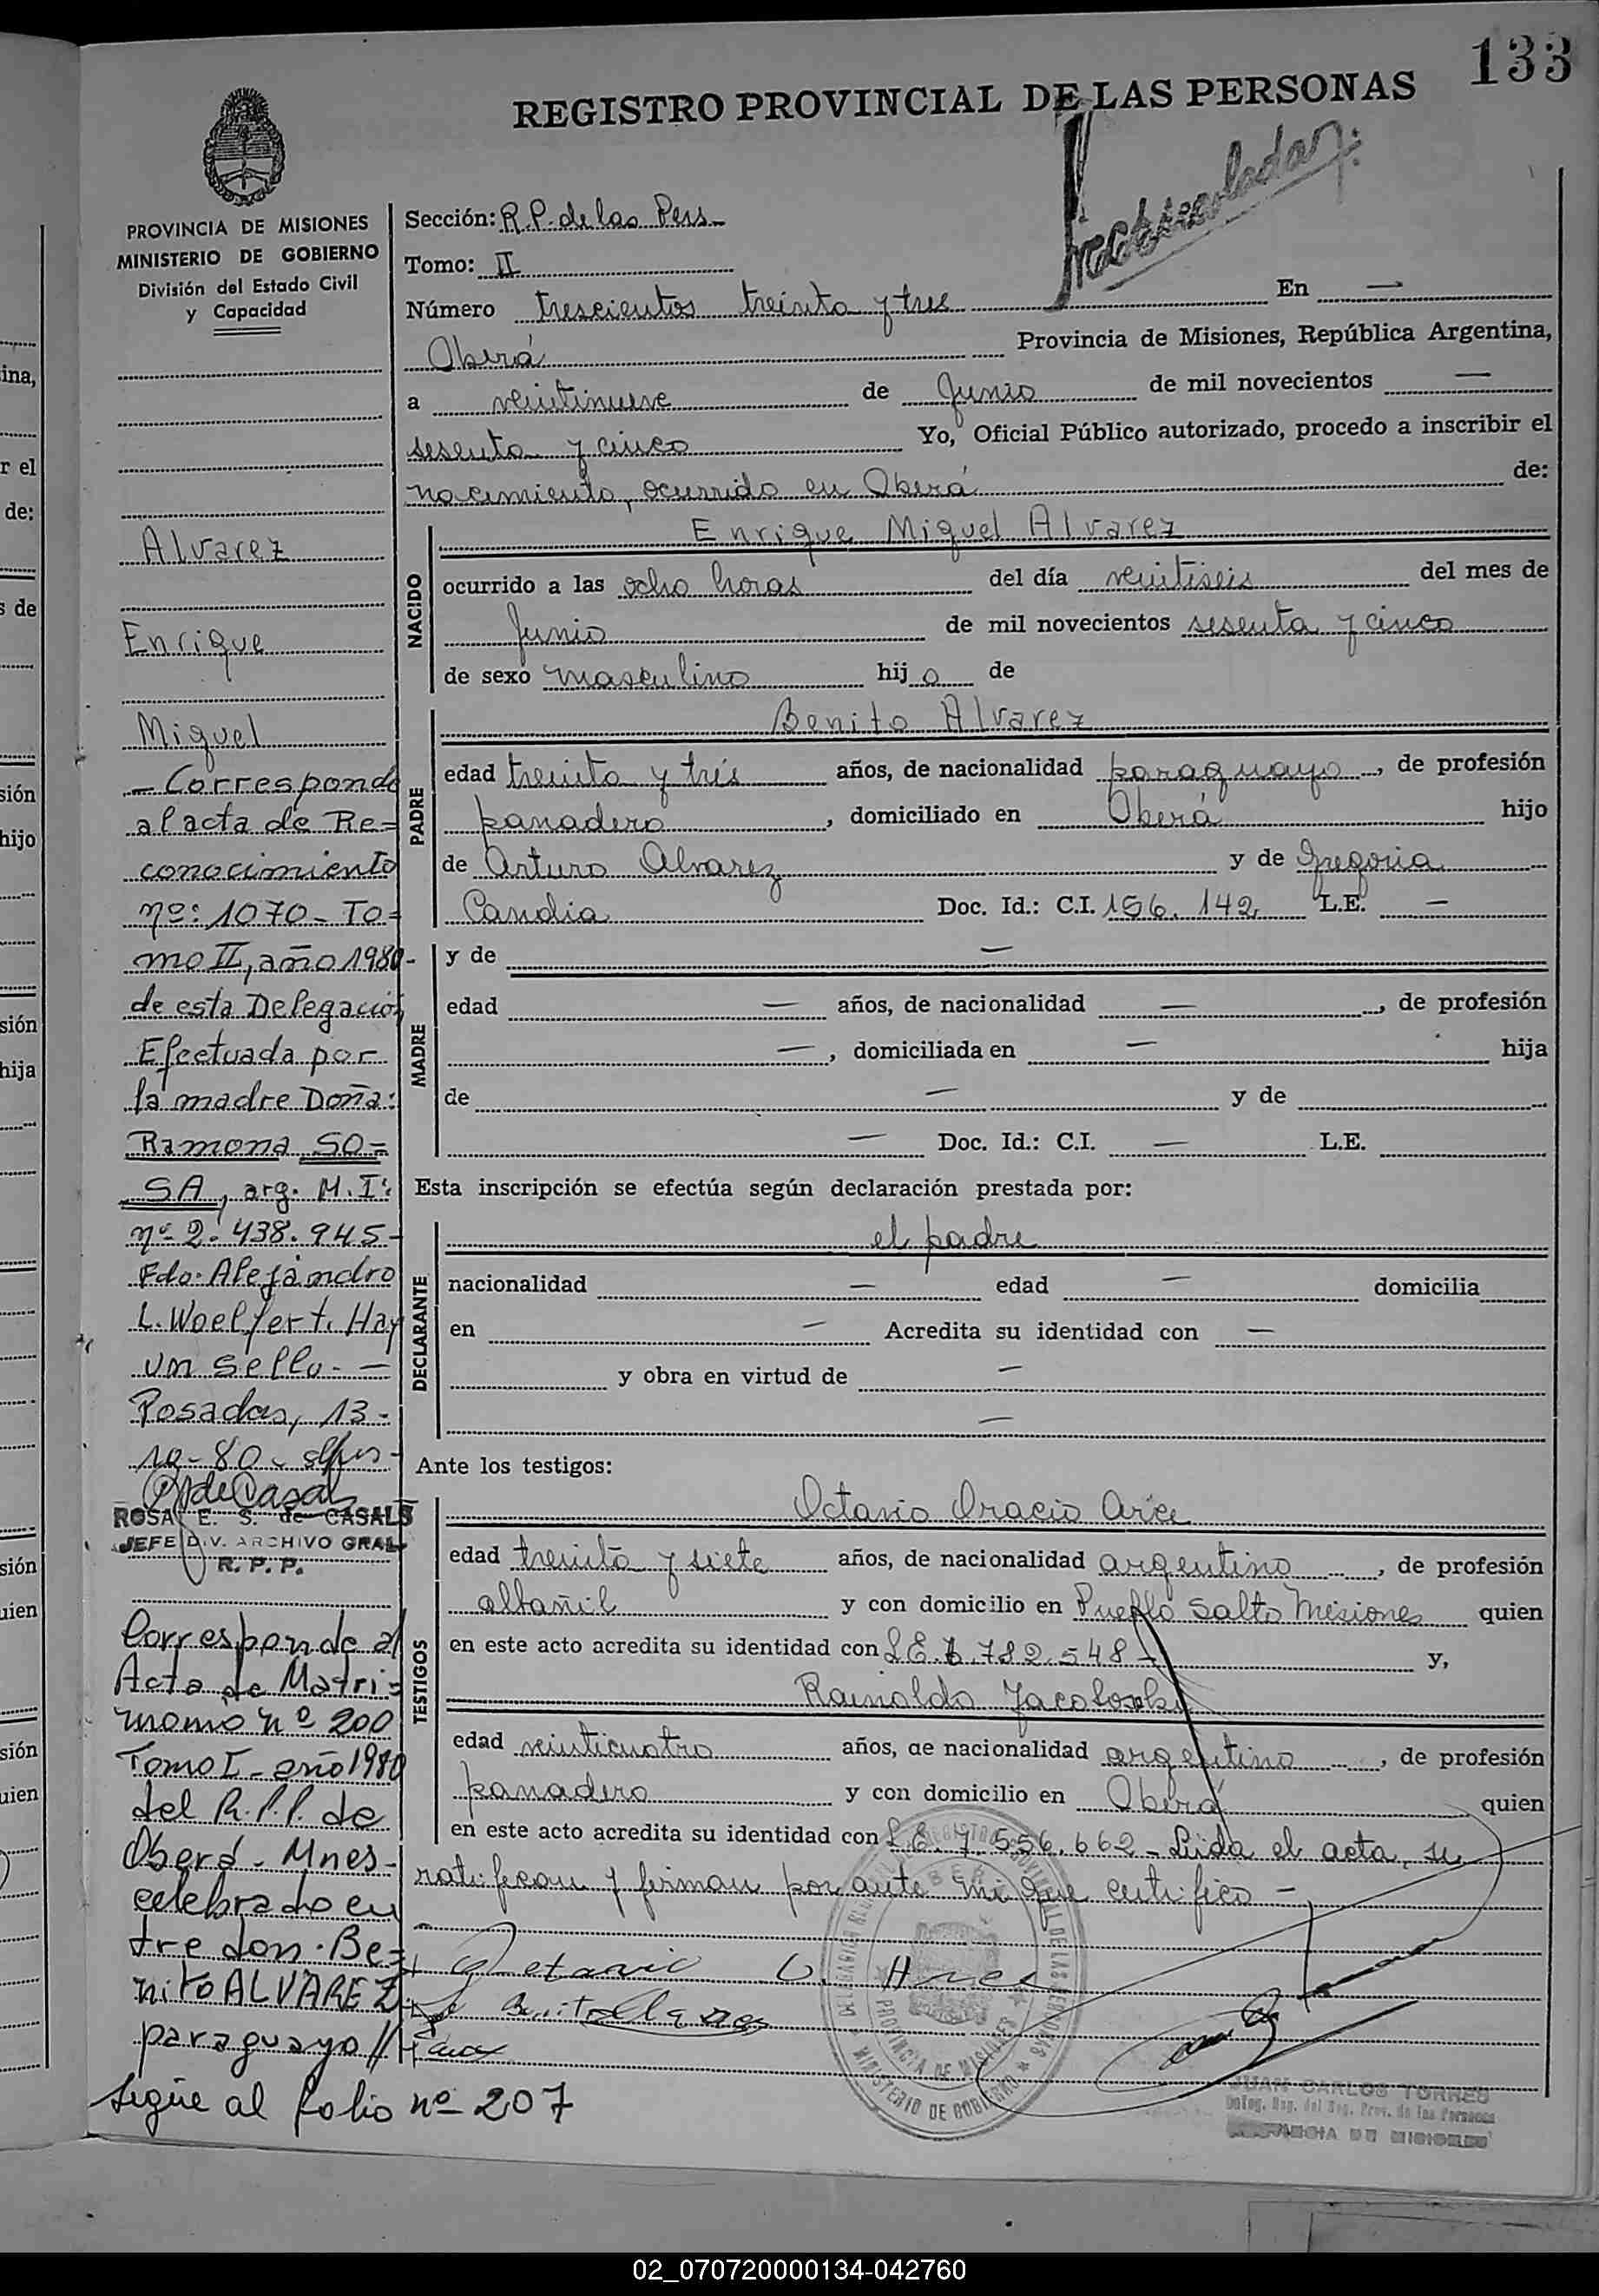 133
REGISTRO PROVINCIAL DE LAS PERSONAS
PROVINCIA DE MISIONES
MINISTERIO DE GOBIERNO
División del Estado Civil
y Capacidad
Sección: R.P. de las Pers
Tomo: II
Número trescientos treinta y tres En —
Oberá Provincia de Misiones, República Argentina,
a veintinueve de Junio de mil novecientos —
sesenta y cinco Yo, Oficial Público autorizado, procedo a inscribir el
nacimiento, ocurrido en Oberá de:
NACIDO
Enrique Miguel Alvarez
ocurrido a las ocho horas del día veintiseis del mes de
Junio de mil novecientos sesenta y cinco
de sexo masculino hijo de
PADRE
Benito Alvarez
edad treinta y trés años, de nacionalidad paraguayo, de profesión
panadero, domiciliado en Oberá hijo
de Arturo Alvarez y de Gregoria
Candia Doc. Id.: C.I. 156.142 L.E. —
MADRE
y de —
edad — años, de nacionalidad —, de profesión
—, domiciliada en — hija
de — y de
— Doc. Id.: C.I. — L.E.
Esta inscripción se efectúa según declaración prestada por:
DECLARANTE
el padre
nacionalidad — edad — domicilia
en — Acredita su identidad con —
y obra en virtud de —
—
Ante los testigos:
TESTIGOS
Octavio Oracio Arce
edad treinta y siete años, de nacionalidad argentino, de profesión
albañil y con domicilio en Pueblo Salto Misiones quien
en este acto acredita su identidad con L.E. 782.548 y,
Rainoldo
edad veinticuatro años, de nacionalidad argentino, de profesión
panadero y con domicilio en Oberá quien
en este acto acredita su identidad con L.E. 7.556.662 - Leida el acta, se
ratifican y firman por ante mi que certifico -
JUAN CARLOS TORRES
Alvarez
Enrique
Miguel
- Corresponde
al acta de Re=
conocimiento
nº: 1070 - To=
mo II, año 1980 -
de esta Delegación
Efectuada por
la madre Doña:
Ramona SO=
SA, arg. M.I:
nº 2.438.945 -
Fdo. Alejandro
L. Woelfert. Hay
un sello. —
Posadas, 13 -
10 - 80 -
ROSA E. S. de CASALS
JEFE DIV. ARCHIVO GRAL
R. P. P.
Corresponde al
Acta de Matri=
monio nº 200
Tomo I - año 1980
del R.P.P. de
Oberá - Mnes -
celebrado en
tre don. Be=
nito ALVAREZ
paraguayo //
sigue al folio nº 207
MINISTERIO DE GOBIERNO
PROVINCIA DE MISIONES
02_070720000134-042760